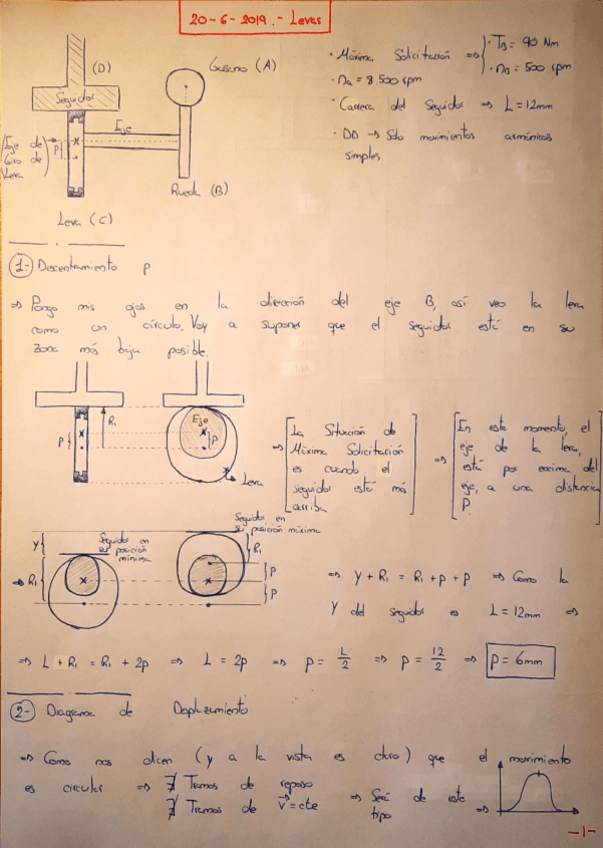 20-6-2019.- Levas
(D)
Seguidor
Gusano (A)
Eje
Eje de
Giro de
Leva
P
Rueda (B)
Leva (C)
· Máxima Solicitación => · TB = 90 Nm
· nB = 500 rpm
· nA = 8.500 rpm
· Carrera del Seguidor => L = 12mm
· DD -> Sólo movimientos armónicos
simples
1-) Descentramiento p
=> Pongo mis ojos en la dirección del eje B, así veo la leva
como un círculo. Voy a suponer que el seguidor está en su
zona más baja posible.
R1
P
Eje
P
Leva
=> [La Situación de
Máxima Solicitación
es cuando el
seguidor está más
arriba]
=> [En este momento, el
eje de la leva,
está por encima del
eje, a una distancia
P.]
Seguidor en
su posición
mínima
Seguidor en
su posición máxima
Y
R1
R1
P
P
=> Y + R1 = R1 + p + p => Como la
Y del seguidor es L = 12mm =>
=> L + R1 = R1 + 2p => L = 2p => p = L/2 => p = 12/2 => p = 6mm
2-) Diagrama de Desplazamiento
=> Como nos dicen (y a la vista es claro) que el movimiento
es circular => ∄ Tramos de reposo
∄ Tramos de v⃗ = cte => Será de este
tipo =>
-1-